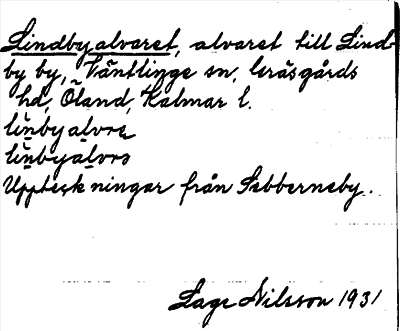 Lindbyalvaret, alvaret till Lind-
by by, Väntlinge sn, Gräsgårds
hd, Öland, Kalmar l.
linbyalvre
linbyalvrs
Uppteckningar från Sebberneby.
Lage Nilsson 1931